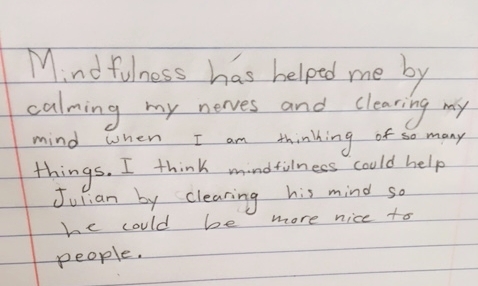 Mindfulness has helped me by
calming my nerves and clearing my
mind when I am thinking of so many
things. I think mindfulness could help
Julian by clearing his mind so
he could be more nice to
people.